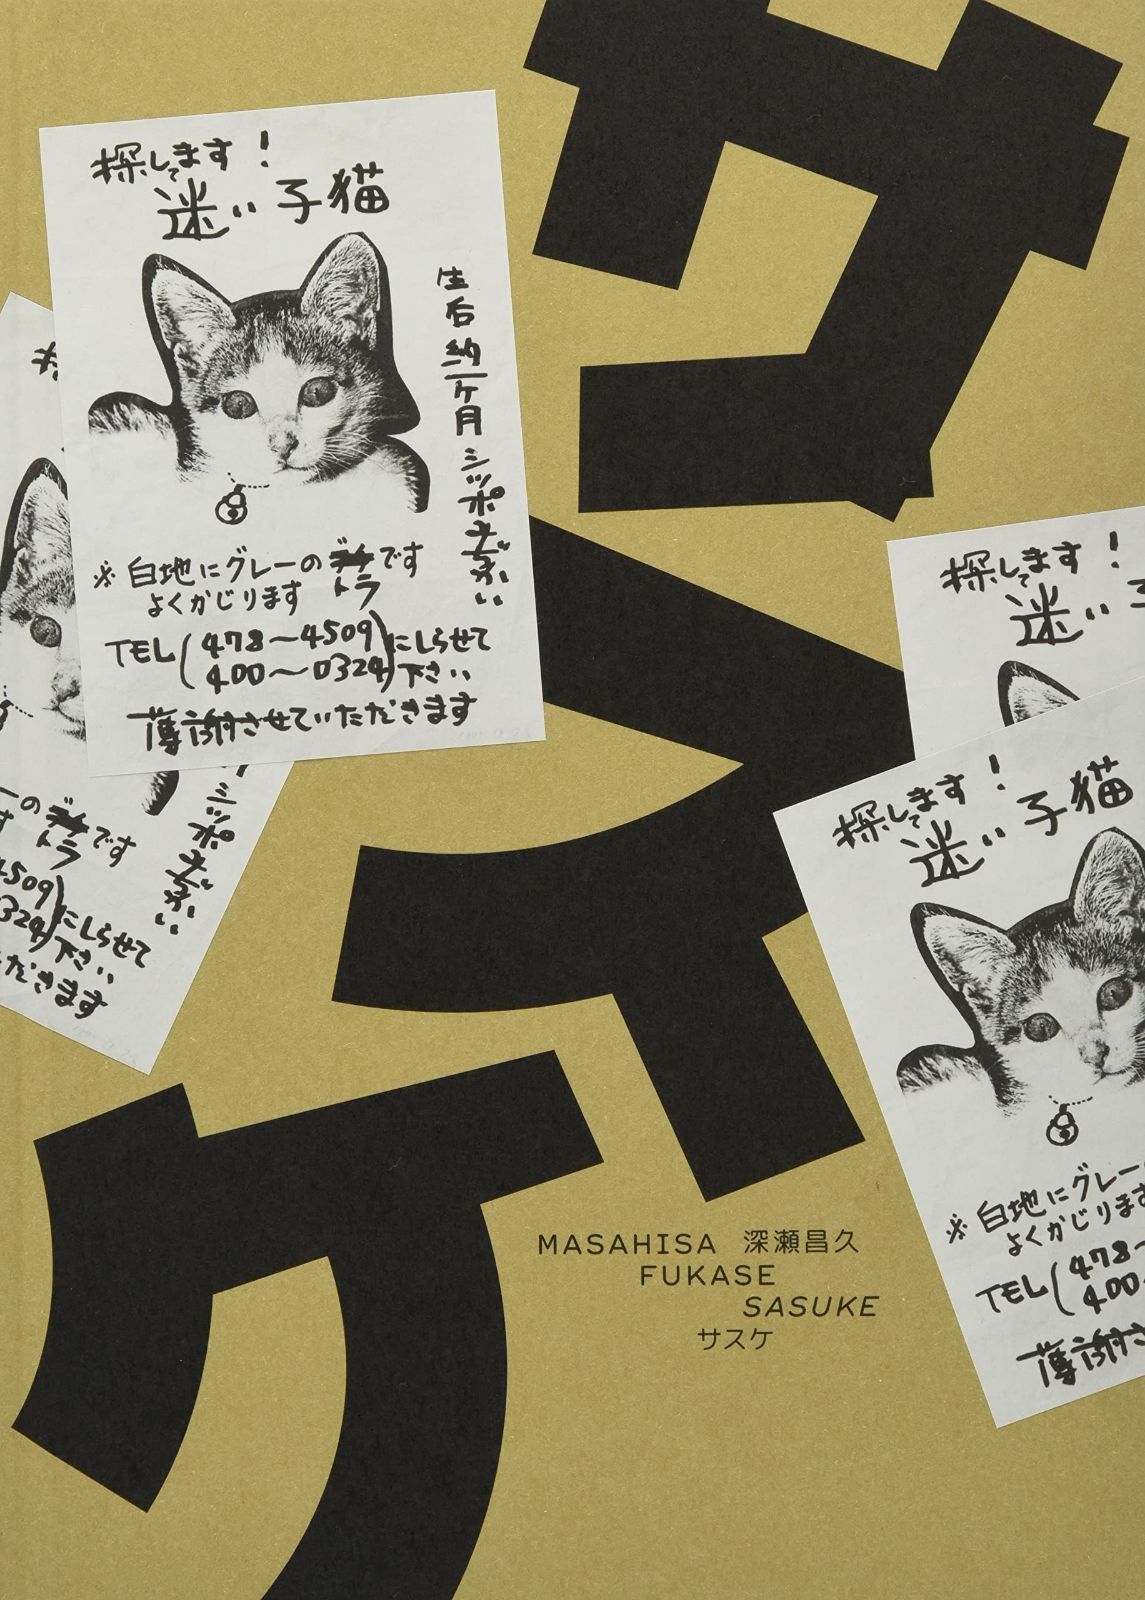 サスケ
探してます!
迷い子猫
生后約一ヶ月シッポ
※白地にグレーの です
トラ
よくかじります
TEL(478〜4509
400〜0324)にしらせて
下さい
薄謝させていただきます
ーの です
トラ
シッポ
4509)にしらせて
0324 下さい
ただきます
探してます!
迷い子
探してます!
迷い子猫
※白地にグレー
よくかじります
TEL(478〜
400〜
薄謝さ
MASAHISA 深瀬昌久
FUKASE
SASUKE
サスケ